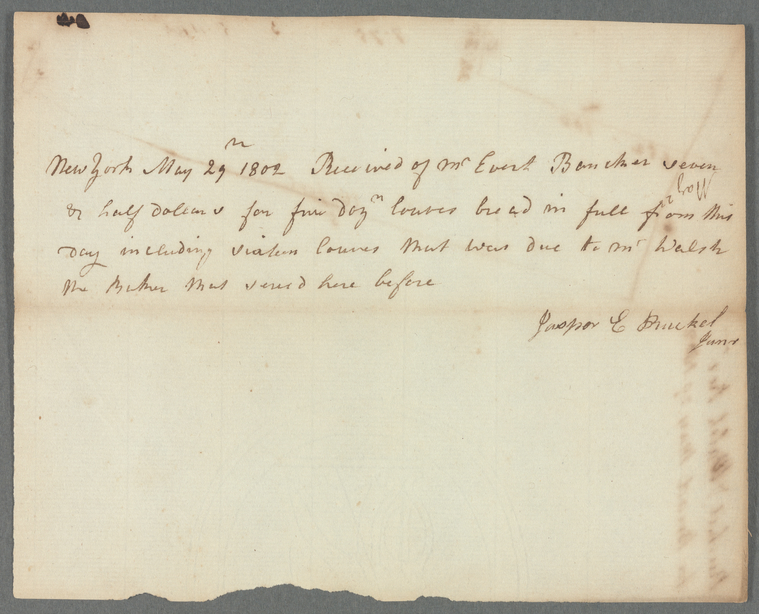 New York May 29th 1802 Received of Mr Evert Bancker seven
& half Dollars for five Dozn loaves bread in full from this
Day including sixteen loaves that was due to Mr Walsh
the Baker that serv'd here before
Jaspor E
Junr